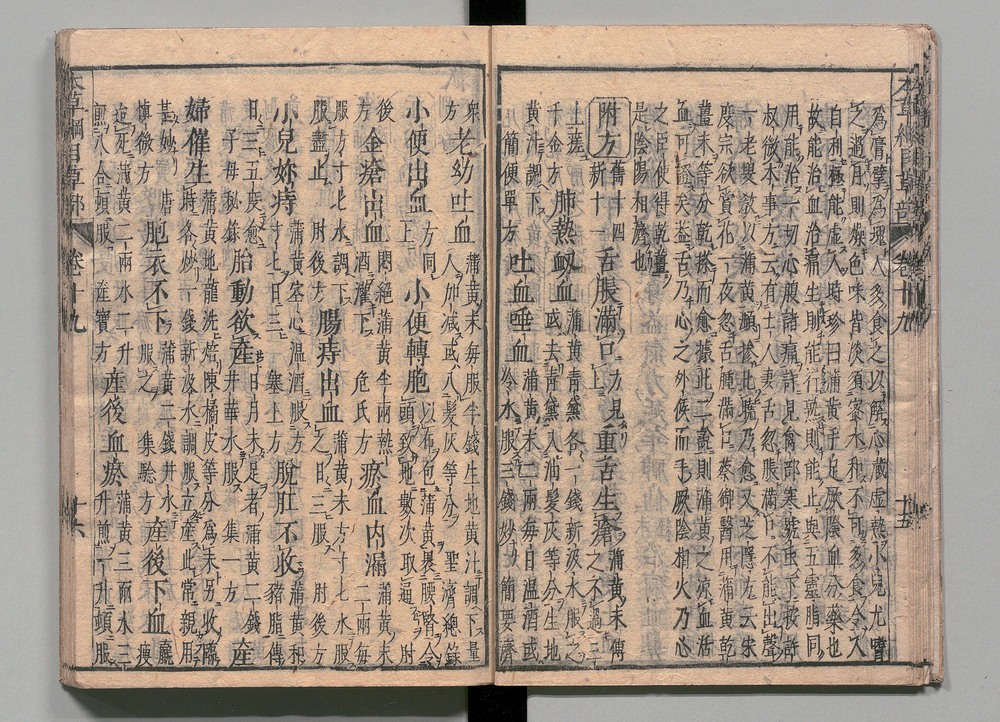 本草綱目草部 卷十九 十五
為膏擘為塊人多食之以解心臟虛熱小兒尤嗜
之過月則燥色味皆淡須蜜水和不可多食令人
自利極能虛人時珍曰蒲黃手足厥陰血分藥也
故能治血治痛生則能行熟則能止與五靈脂同
用能治一切心腹諸痛詳見禽部寒號蟲下按許
叔微本事方云有士人妻舌忽脹滿口不能出聲
一老叟敎以蒲黃頻摻比曉乃愈又芝隱方云宋
度宗欲賞花一夜忽舌腫滿口蔡御醫用蒲黃乾
薑末等分乾搽而愈據此二說則蒲黃之涼血活
血可證矣蓋舌乃心之外候而手厥陰相火乃心
之臣使得乾薑
是陰陽相濟也
附方 舊十四新十一 舌脹滿口 方見上 重舌生瘡 蒲黃末傅之不過三
上瘥 千金方 肺熱衄血 蒲黃青黛各一錢新汲水服之或去青黛入油髮灰等分生地
黃汁調下 簡便單方 吐血唾血 蒲黃末二兩每日温酒或冷水服三錢妙 簡要濟
衆方 老幼吐血 蒲黃末每服半錢生地黃汁調下量人加減或入髮灰等分 聖濟總錄
小便出血 方同上 小便轉胞 以布包蒲黃裹腰腎令頭致地數次取通 肘
後方 金瘡出血 悶絕蒲黃半兩熱酒灌下 危氏方 瘀血内漏 蒲黃末二兩每
服方寸匕水調下服盡止 肘後方 腸痔出血 蒲黃末方寸匕水服之日三服 肘後方
小兒妳痔 蒲黃空心温酒服方寸匕日三 塞上方 脫肛不收 蒲黃和猪脂傅
日三五度愈 子母秘錄 胎動欲産 日月未足者蒲黃二錢井華水服 集一方 産
婦催生 蒲黃地龍洗焙陳橘皮等分為末另收臨時各炒一錢新汲水調服立産此常親用
甚妙 唐慎微方 胞衣不下 蒲黃二錢井水服之 集驗方 産後下血 羸瘦
迨死蒲黃二兩水二升煎八合頓服 産寶方 産後血瘀 蒲黃三兩水三升煎一升頓服
本草綱目草部 卷十九